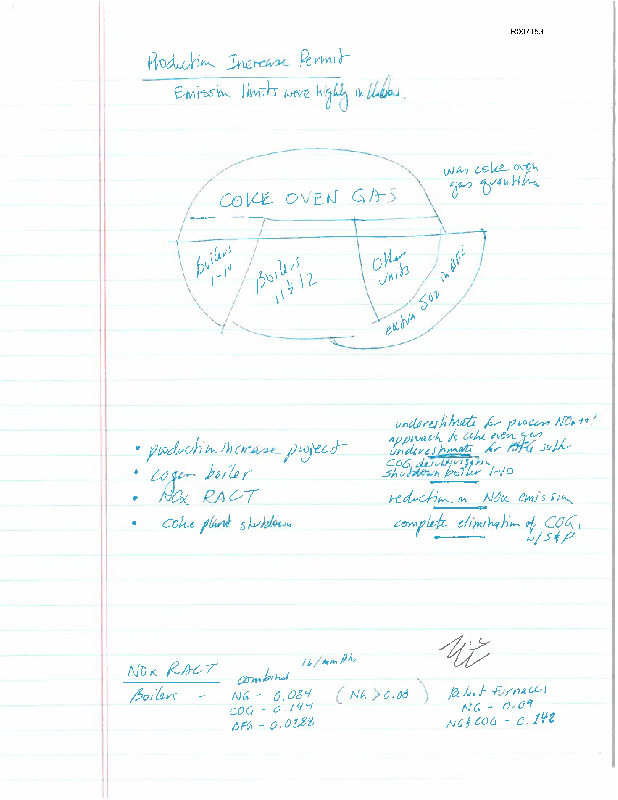 R007153
Production Increase Permit
Emission limits were highly in
was coke oven
gas quantities
COKE OVEN GAS
Boilers
1-10
Boilers
11 & 12
Other
units
extra SO2 in BFG
underestimate for process
approach to coke oven gas
• production increase project
underestimate for sulfur
COG desulfurization
• Cogen boiler
shutdown boiler 1-10
• NOx RACT
reduction in NOx emission
• coke plant shutdown
complete elimination of COG,
w/ S & P
NOx RACT
combined
lb/mmBtu
Boilers - NG - 0.084 (NG > 0.08)
COG - 0.144
BFG - 0.0288
Reheat furnaces
NG - 0.09
NG & COG - 0.142